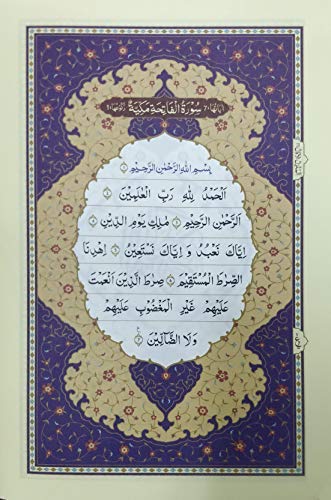 اٰيَاتُهَا ٧ سُوْرَةُ الْفَاتِحَةِ مَكِّيَّةٌ رُكُوْعُهَا ١
بِسْمِ اللّٰهِ الرَّحْمٰنِ الرَّحِيْمِ ۝١
اَلْحَمْدُ لِلّٰهِ رَبِّ الْعٰلَمِيْنَ ۝٢
الرَّحْمٰنِ الرَّحِيْمِ ۝٣ مٰلِكِ يَوْمِ الدِّيْنِ ۝٤
اِيَّاكَ نَعْبُدُ وَ اِيَّاكَ نَسْتَعِيْنُ ۝٥ اِهْدِنَا
الصِّرَاطَ الْمُسْتَقِيْمَ ۝٦ صِرَاطَ الَّذِيْنَ اَنْعَمْتَ
عَلَيْهِمْ غَيْرِ الْمَغْضُوْبِ عَلَيْهِمْ
وَلَا الضَّآلِّيْنَ ۝٧